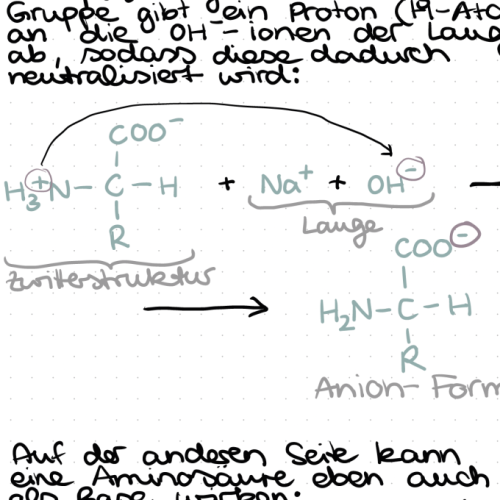 Gruppe gibt ein Proton (H-Ato
an die OH⁻-ionen der Laug
ab, sodass diese dadurch
neutralisiert wird:
COO⁻
H₃⁺N–C–H + Na⁺ + OH⁻
R
Lauge
Zwitterstruktur
COO⁻
H₂N–C–H
R
Anion-Form
Auf der anderen Seite kann
eine Aminosäure eben auch
als Base wirken: